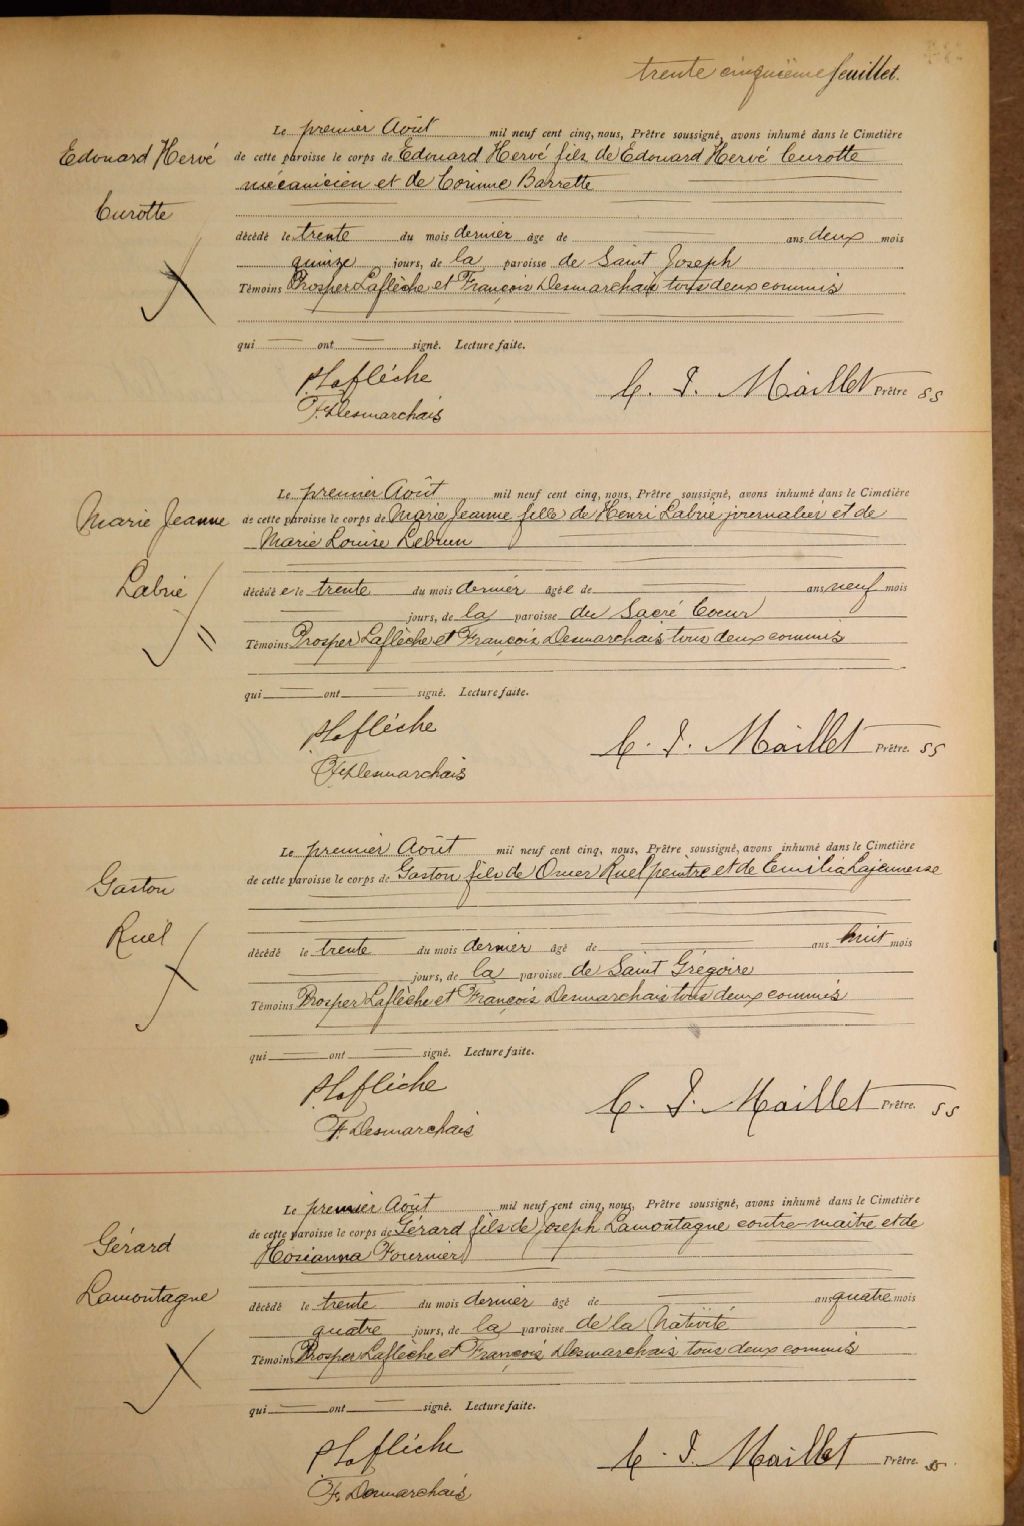 trente cinquième feuillet.
Le premier Août mil neuf cent cinq, nous, Prêtre soussigné, avons inhumé dans le Cimetière
Edouard Hervé de cette paroisse le corps de Edouard Hervé fils de Edouard Hervé Curotte
mécanicien et de Corinne Barrette
Curotte
décédé le trente du mois dernier âgé de ans deux mois
quinze jours, de la paroisse de Saint Joseph
Témoins Prosper Laflèche et François Desmarchais tous deux commis
qui ont signé. Lecture faite.
P Laflèche
C. J. Maillet Prêtre SS
F. Desmarchais
Le premier Août mil neuf cent cinq, nous, Prêtre soussigné, avons inhumé dans le Cimetière
Marie Jeanne de cette paroisse le corps de Marie Jeanne fille de Henri Labrie journalier et de
Marie Louise Lebrun
Labrie décédé e le trente du mois dernier âgé e de ans neuf mois
jours, de la paroisse du Sacré Coeur
Témoins Prosper Laflèche et François Desmarchais tous deux commis
qui ont signé. Lecture faite.
P Laflèche
C. J. Maillet Prêtre. SS
F. Desmarchais
Le premier Août mil neuf cent cinq, nous, Prêtre soussigné, avons inhumé dans le Cimetière
Gaston de cette paroisse le corps de Gaston fils de Omer Ruel peintre et de Emilia Lajeunesse
Ruel
décédé le trente du mois dernier âgé de ans huit mois
jours, de la paroisse de Saint Grégoire
Témoins Prosper Laflèche et François Desmarchais tous deux commis
qui ont signé. Lecture faite.
P Laflèche
C. J. Maillet Prêtre. SS
F. Desmarchais
Le premier Août mil neuf cent cinq, nous, Prêtre soussigné, avons inhumé dans le Cimetière
Gérard de cette paroisse le corps de Gérard fils de Joseph Lamontagne contre-maître et de
Hosianna Fournier
Lamontagne décédé le trente du mois dernier âgé de ans quatre mois
quatre jours, de la paroisse de la Nativité
Témoins Prosper Laflèche et François Desmarchais tous deux commis
qui ont signé. Lecture faite.
P Laflèche
C. J. Maillet Prêtre. SS.
F. Desmarchais